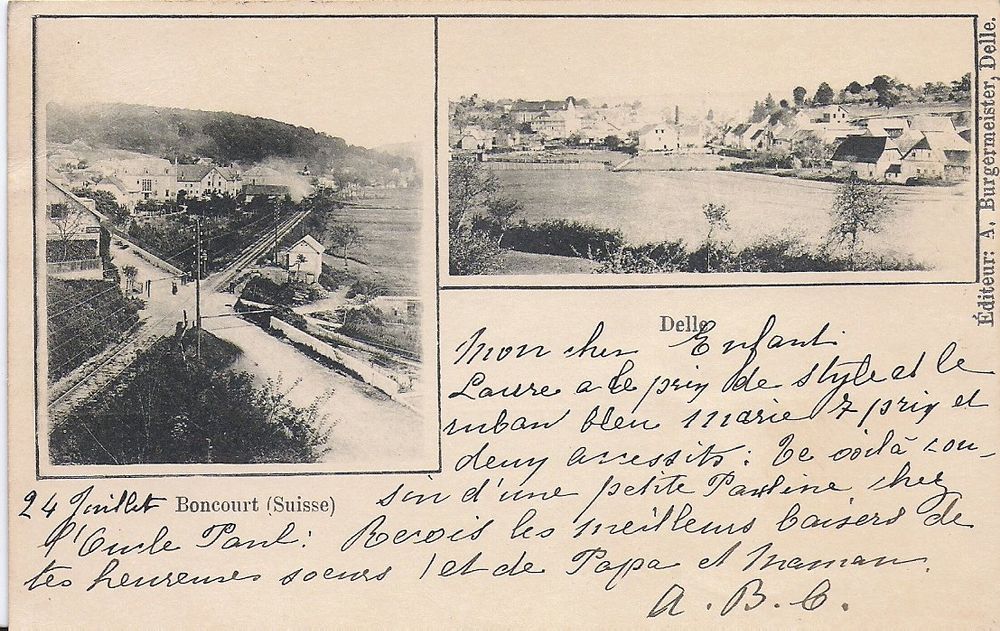 Éditeur: A, Burgermeister, Delle.
Delle
Mon cher Enfant
Laure a le prix de style et le
ruban bleu Marie 7 prix et
deux accessits: Te voilà cou-
sin d'une petite Pauline chez
24 Juillet Boncourt (Suisse)
l'Oncle Paul: Reçois les meilleurs baisers de
tes heureuses soeurs ! et de Papa et Maman.
A. B. C.